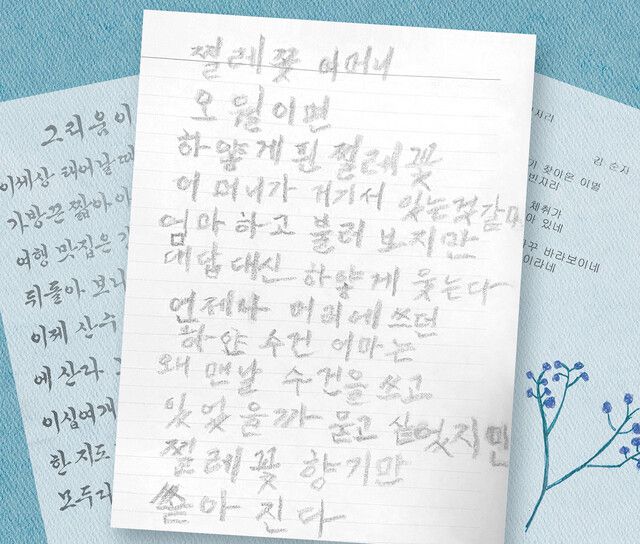 찔레꽃 어머니
오월이면
하얗게 핀 찔레꽃
어머니가 거기서 있는것 같아
엄마 하고 불러 보지만
대답 대신 하얗게 웃는다
언제나 머리에 쓰던
하얀 수건 어마는
왜 맨날 수건을 쓰고
있었을까 묻고 싶었지만
찔레꽃 향기만
쏟아 진다
그리움이
이세상 태어날때
가방끈 짧아
여행 맛집은
뒤돌아 보니
이제 산수
에 산다
이십여개
한지도
모두
김 순자
찾아온 이별
빈자리
체취가
있네
바라보이네
이라네